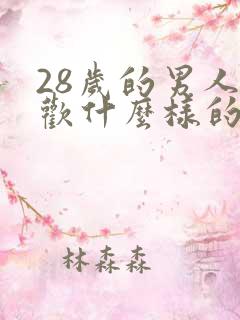 28歲的男人
歡什麼樣的
林森森